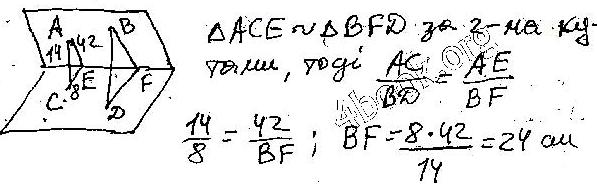 A B
14 42
E F
C 8 D
△ACE ∾ △BFD за 2-ма ку-
тами, тоді AC/BD = AE/BF
14/8 = 42/BF ; BF = 8·42/14 = 24 см
4book.org